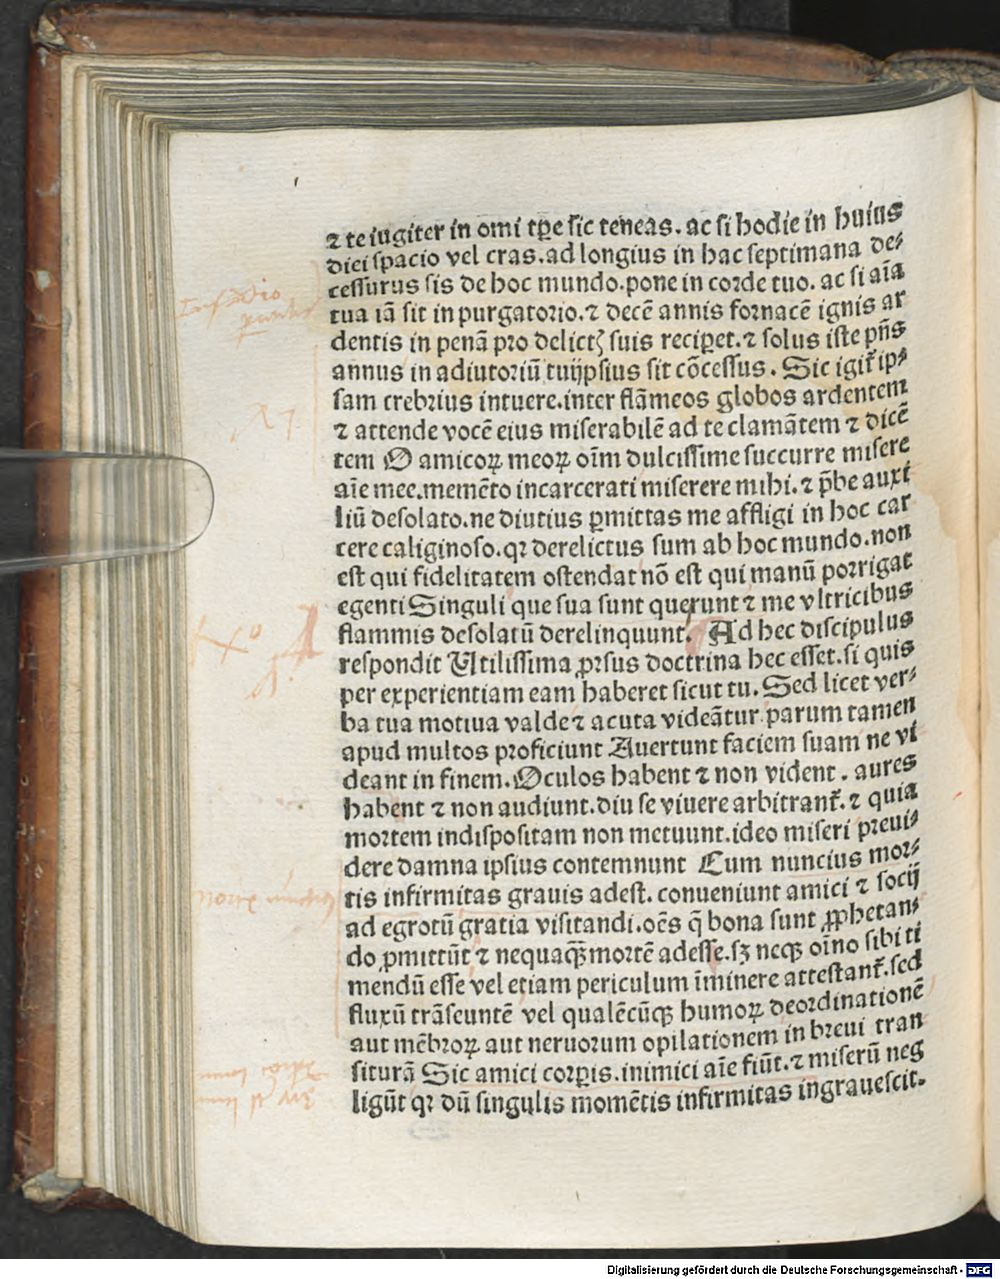 ⁊ te iugiter in om̄i tp̄e sic teneas. ac si hodie in huius
diei spacio vel cras. ad longius in hac septimana de⸗
cessurus sis de hoc mundo. pone in corde tuo. ac si aīa
tua iā sit in purgatorio. ⁊ decē annis fornacē ignis ar
dentis in penā pro delictꝫ suis recip̄et. ⁊ solus iste pn̄s
annus in adiutoriū tuijpsius sit cōcessus. Sic igit̄ ip⸗
sam crebrius intuere. inter flāmeos globos ardentem
⁊ attende vocē eius miserabilē ad te clamātem ⁊ dicē
tem O amicoꝝ meoꝝ oīm dulcissime succurre misere
aīe mee. memēto incarcerati miserere mihi. ⁊ p̄be auxi
liū desolato. ne diutius ꝑmittas me affligi in hoc car
cere caliginoso. qꝛ derelictus sum ab hoc mundo. non
est qui fidelitatem ostendat nō est qui manū porrigat
egenti Singuli que sua sunt querunt ⁊ me vltricibus
flammis desolatū derelinquunt. Ad hec discipulus
respondit Utilissima ꝓrsus doctrina hec esset. si quis
per experientiam eam haberet sicut tu. Sed licet ver⸗
ba tua motiua valde ⁊ acuta videātur parum tamen
apud multos proficiunt Auertunt faciem suam ne vi
deant in finem. Oculos habent ⁊ non vident. aures
habent ⁊ non audiunt. diu se viuere arbitrant̄. ⁊ quia
mortem indispositam non metuunt. ideo miseri preui⸗
dere damna ipsius contemnunt Cum nuncius mor⸗
tis infirmitas grauis adest. conueniunt amici ⁊ socij
ad egrotū gratia visitandi. oēs q̄ bona sunt ꝓphetan⸗
do ꝓmittūt ⁊ nequaqꝫ mortē adesse. sꝫ neqꝫ oīno sibi ti
mendū esse vel etiam periculum īminere attestant̄. sed
fluxū trāseuntē vel qualēcūqꝫ humoꝝ deordinationē
aut mēbroꝝ aut neruorum opilationem in breui tran
siturā Sic amici corꝑis. inimici aīe fiūt. ⁊ miserū neg
ligūt qꝛ dū singulis momētis infirmitas ingrauescit.
Digitalisierung gefördert durch die Deutsche Forschungsgemeinschaft - DFG